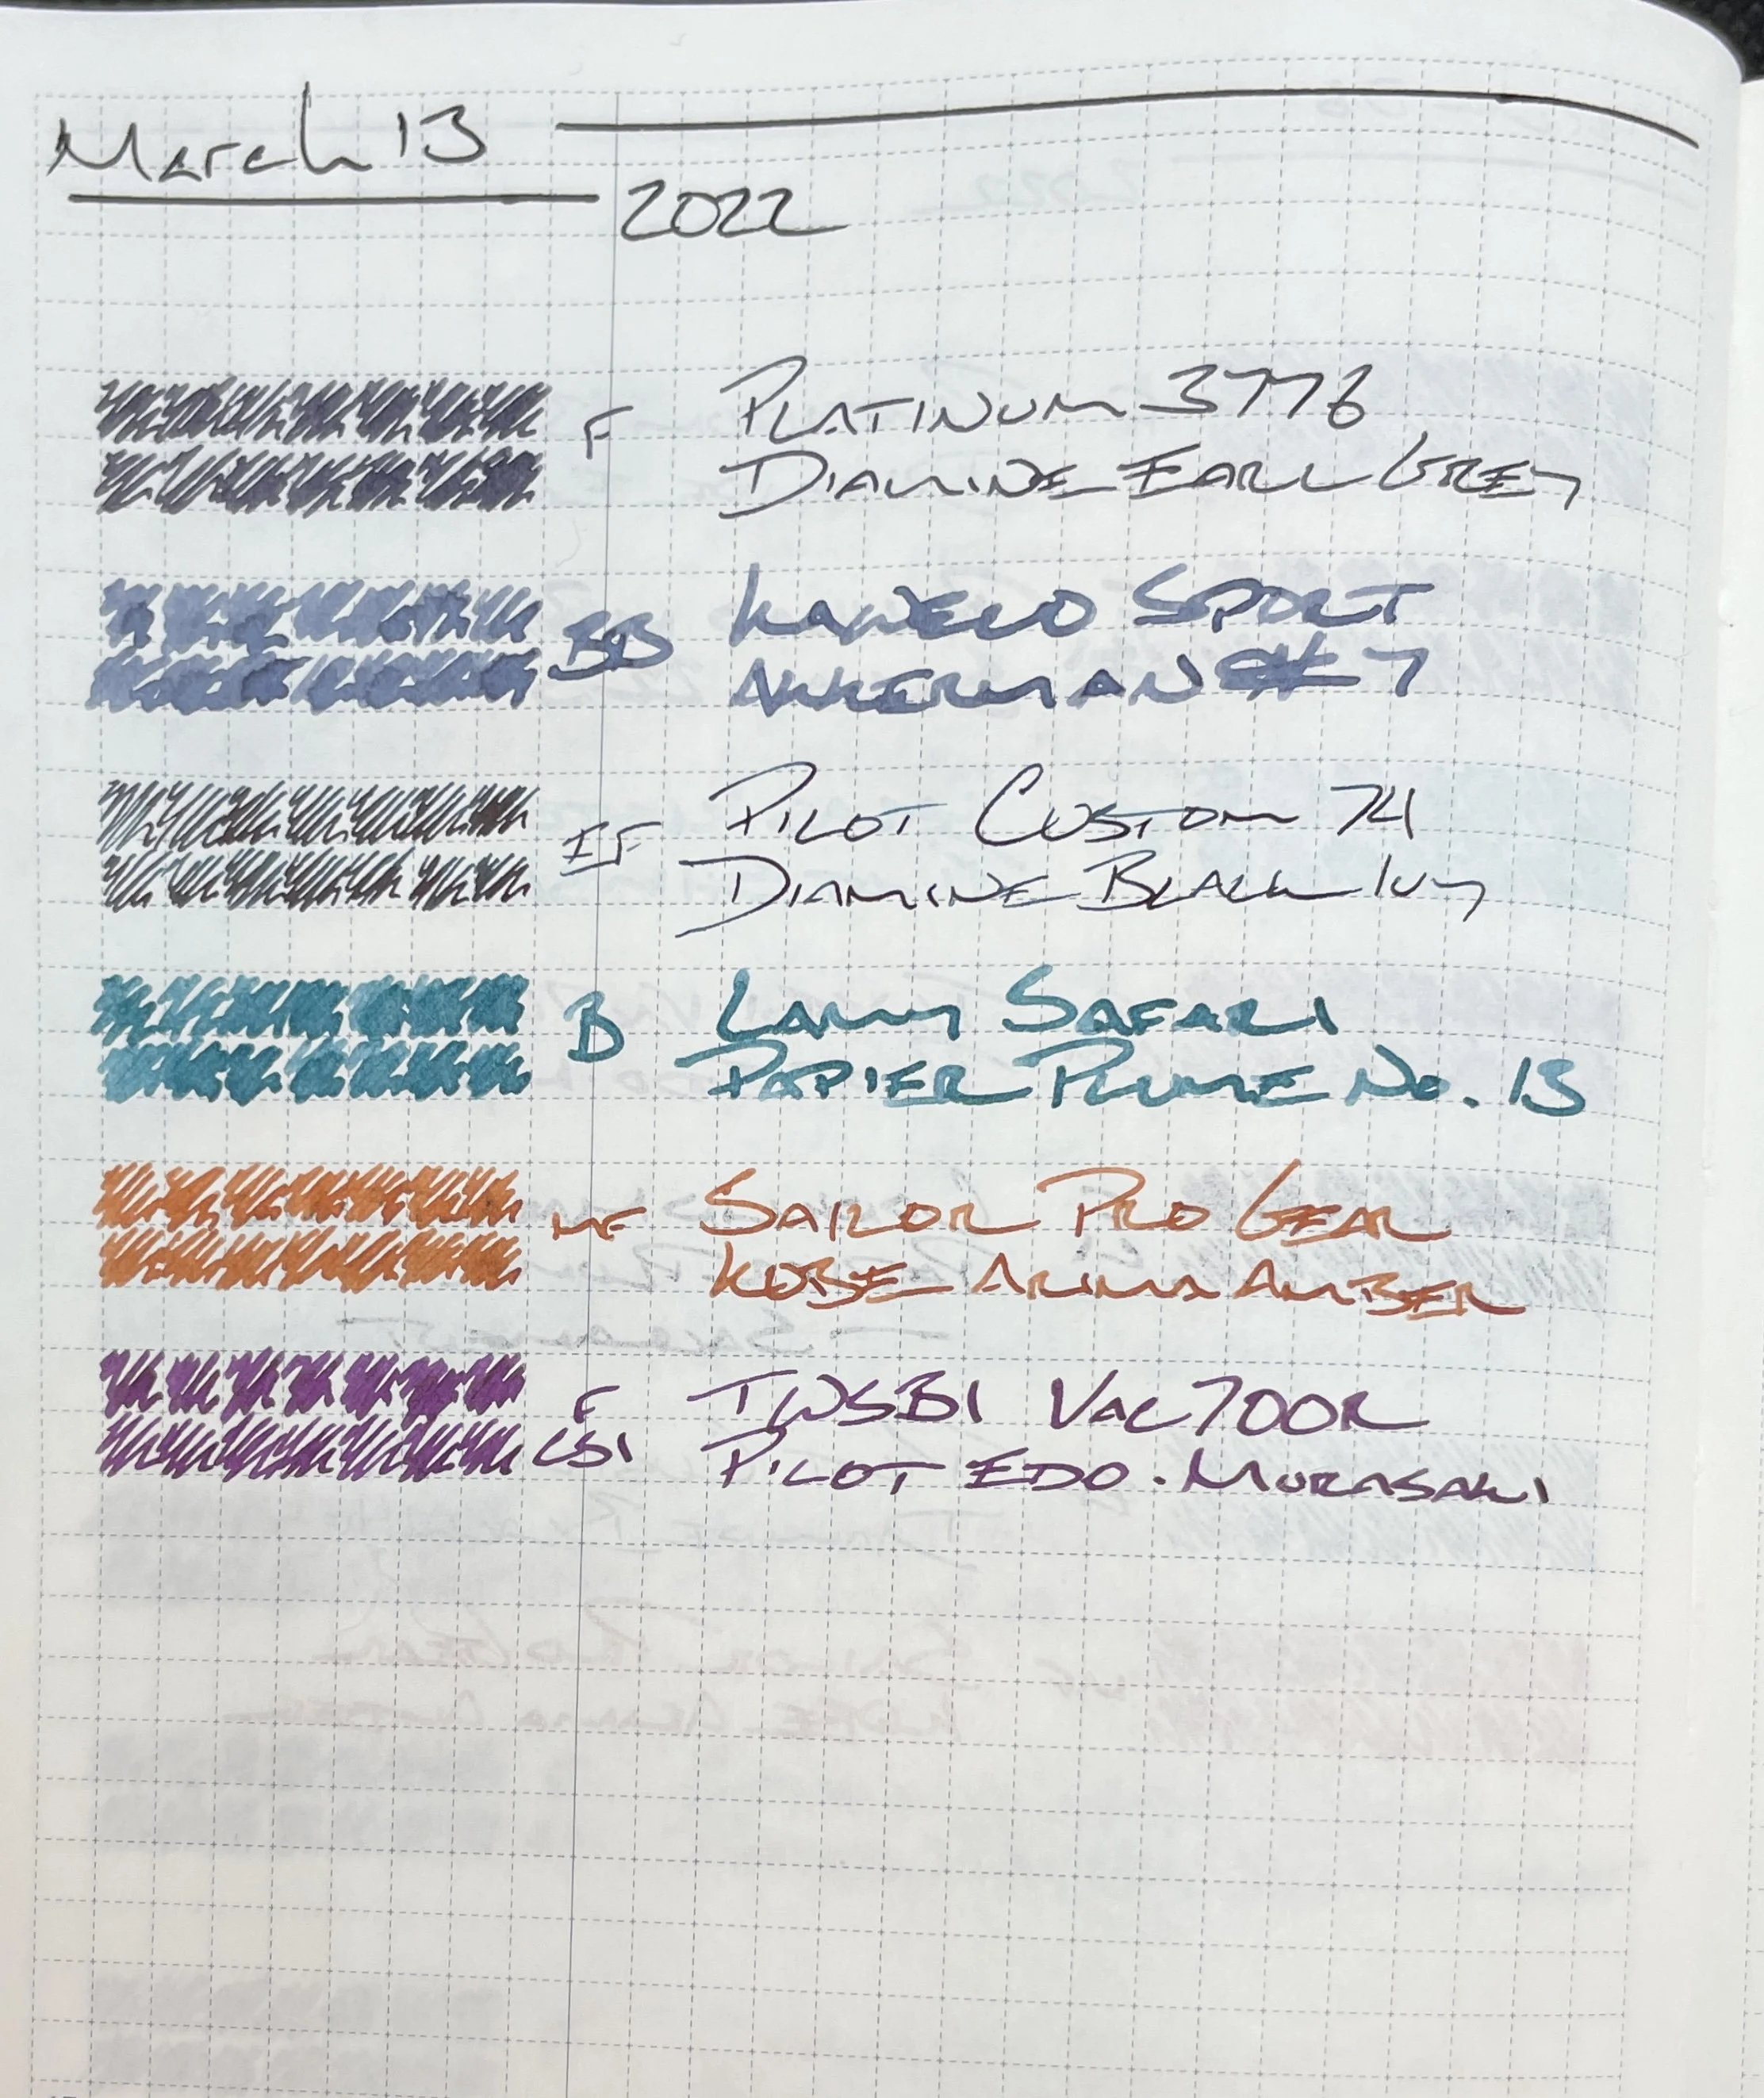 March 13
2022
F PLATINUM 3776
DIAMINE EARL GREY
BB KAWECO SPORT
AKKERMAN #7
EF PILOT CUSTOM 74
DIAMINE BLACK IVY
B LAMY SAFARI
PAPIER PLUME No. 13
MF SAILOR PRO GEAR
KOBE ARIMA AMBER
F TWSBI VAC700R
CSI PILOT EDO-MURASAKI